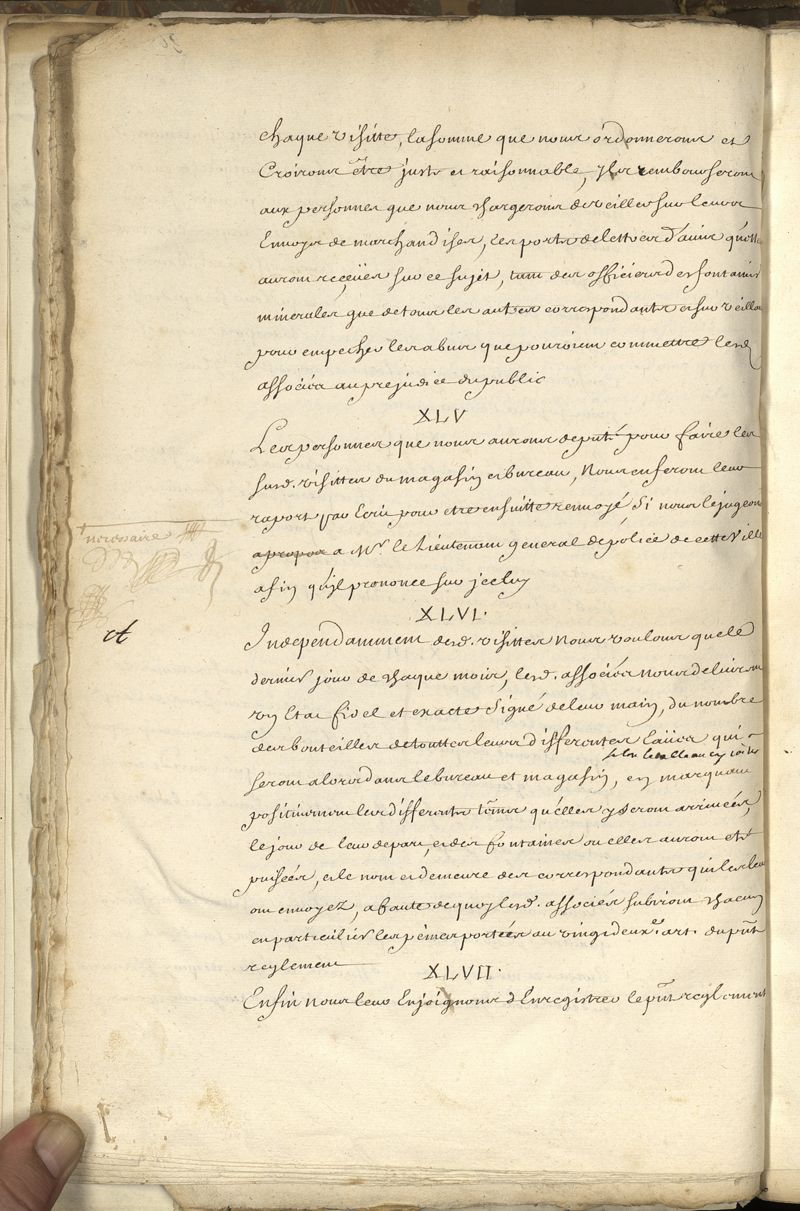 chaque visitte, la somme que nous ordonnerons et
Croirons être juste et raisonnable, ils rembourseront
aux personnes que nous chargerons de veiller sur leurs
Envoys de marchandises, les ports de lettres d'avis qu'elle
auront reçeües sur ce sujet, tant des officiers des fontaines
minerales que de tous les autres correspondants et surveillans
pour empecher les abus que pouroient commettre lesd.
associez au prejudice du public
XLV
Les personnes que nous aurons deputé pour faire les
susd. visittes du magasin et bureau, Nous en feront leur
raport par Ecrit pour etre ensuitte renvoyé Si nous le jugeons
necessaire
apropos a Mr. le Lieutenant general de police de cette Ville
afin qu'jl prononce sur jceluy
XLVI.
Independamment desd. visittes Nous voulons que le
dernier jour de chaque mois, lesd. associéz nous delivrent
vn Etat fidel et exacte Signé de leur main, du nombre
des bouteilles de touttes leurs differentes Eaües qui
selon le
seront alors dans le bureau et magasin, en marquant
positivement les differents tems qu'elles y seront arrivées,
le jour de leur depart, et des fontaines ou elles auront eté
puisées, et le nom et demeure des correspondants qui les leur
ont envoyez, a faute de quoy lesd. associés subiront chacun
en particulier les peines portées au vingt deux.e art. du pñt
reglement
XLVII.
Enfin nous leur Enjoignons d'Enregistrer le pñt reglement